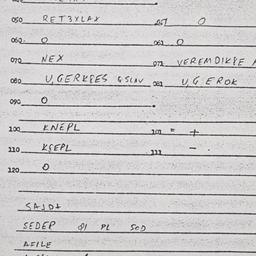 050 RET3YLAX 051 0
060. 0 061 0
070 NEX 071 VEREMDIKPE
080 U,GERKPES &SLAV 081 U,G EROK
090 0
100 KNEPL 101 = +
110 KSEPL 111 -
120 0
SAJD+
SEDEP 81 PL 50D
AFILE